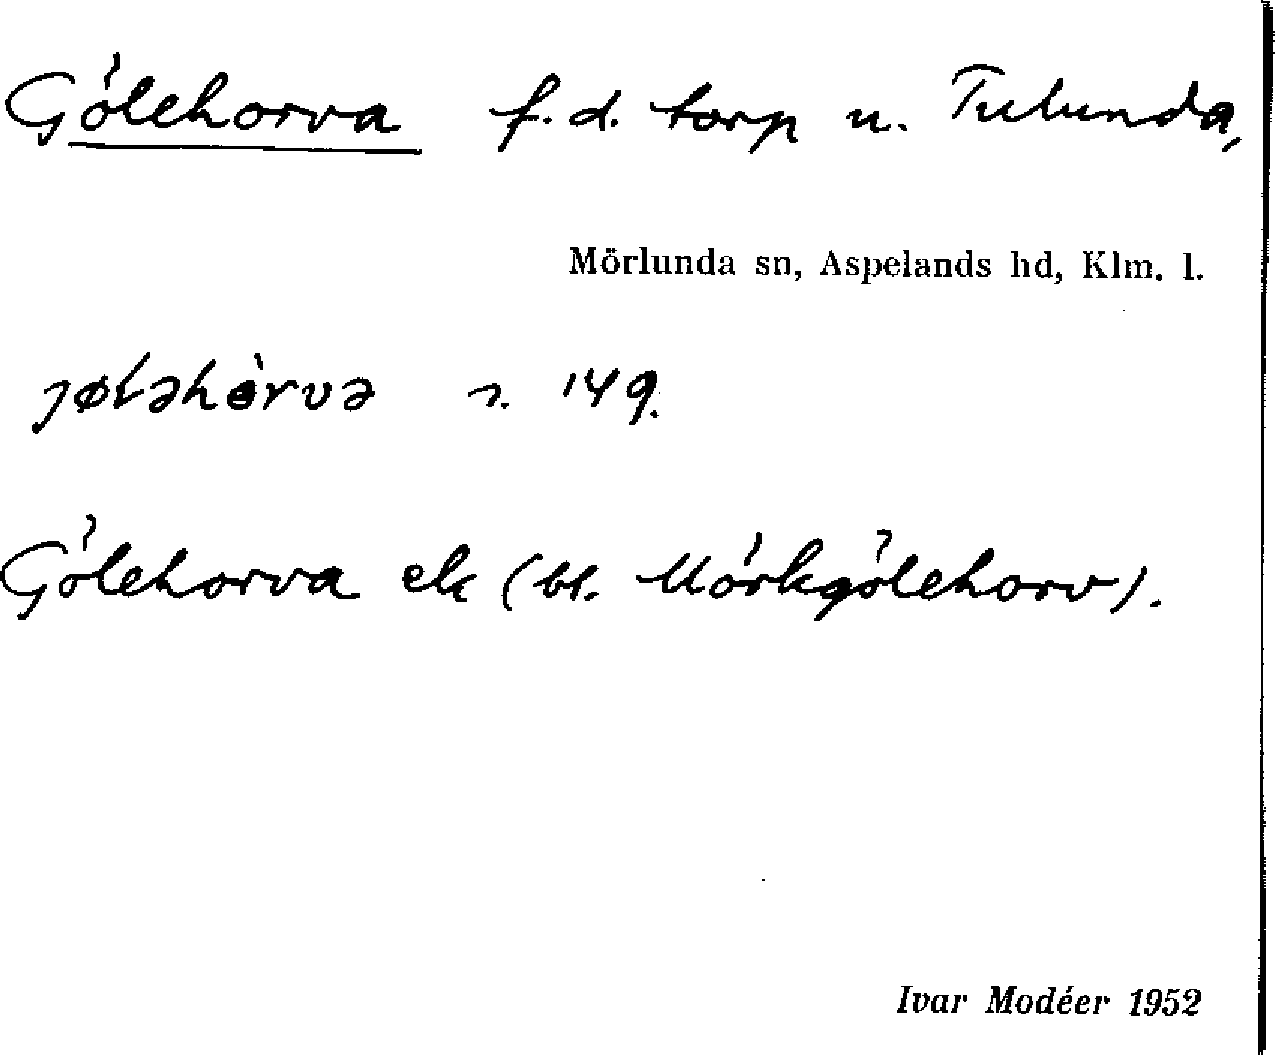 Gölehorva f.d. torp u. Tulunda,
Mörlunda sn, Aspelands hd, Klm. l.
jøləhòrvə n. 149.
Gölehorva ek (bl. Mörkgölehorv).
Ivar Modéer 1952